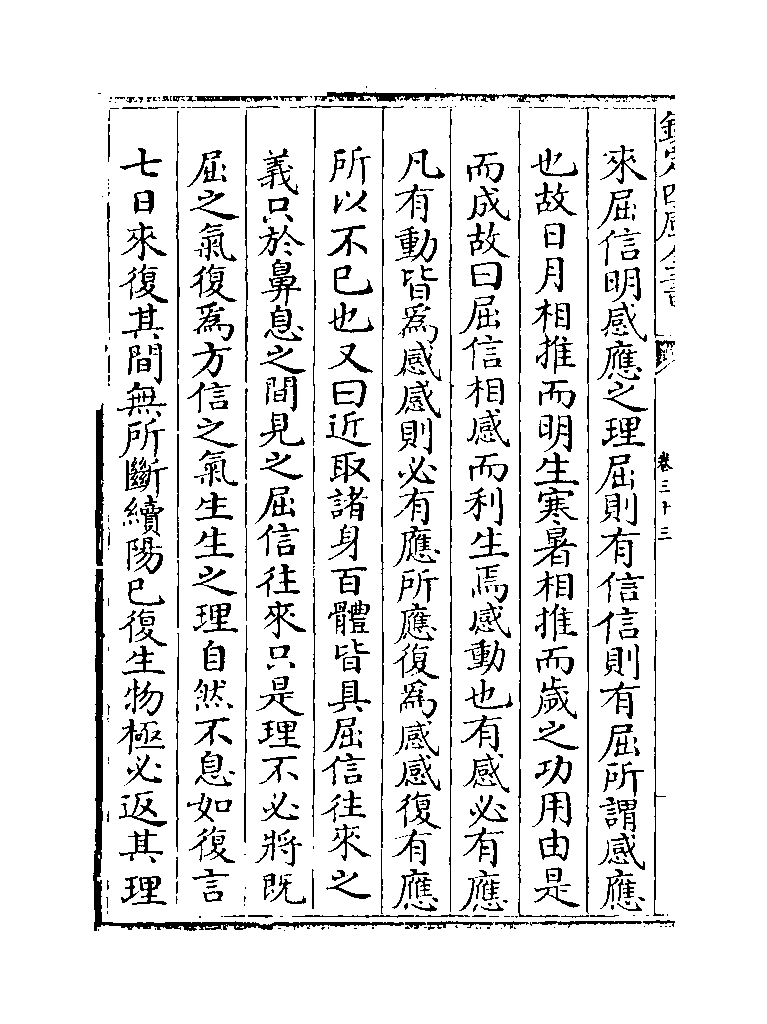 欽定四庫全書
卷三十三
來屈信明感應之理屈則有信信則有屈所謂感應
也故日月相推而明生寒暑相推而歲之功用由是
而成故曰屈信相感而利生焉感動也有感必有應
凡有動皆為感感則必有應所應復為感感復有應
所以不已也又曰近取諸身百體皆具屈信往來之
義只於鼻息之間見之屈信往來只是理不必將既
屈之氣復為方信之氣生生之理自然不息如復言
七日來復其間無所斷續陽已復生物極必返其理